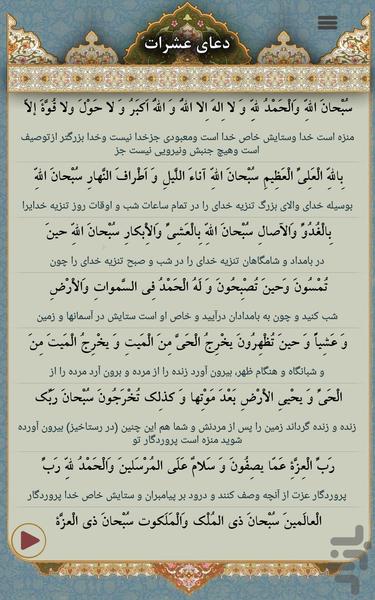 دعای عشرات
سُبْحانَ اللهِ وَالْحَمْدُ لِلّهِ وَ لا اِلهَ اِلا اللهُ وَ اللهُ اَکبَرُ وَ لا حَوْلَ ولا قُوَّةَ اِلاّ
منزه است خدا وستایش خاص خدا است ومعبودی جزخدا نیست وخدا بزرگتر ازتوصیف
است وهیچ جنبش ونیرویی نیست جز
بِاللهِ الْعَلِیِّ الْعَظیمِ سُبْحانَ اللهِ آناءَ اللَّیلِ وَ اَطْرافَ النَّهارِ سُبْحانَ اللهِ
بوسیله خدای والای بزرگ تنزیه خدای را در تمام ساعات شب و اوقات روز تنزیه خدایرا
بِالْغُدُوِّ وَالآصالِ سُبْحانَ اللهِ بِالْعَشِیِّ وَالأبکارِ سُبْحانَ اللهِ حینَ
در بامداد و شامگاهان تنزیه خدای را در شب و صبح تنزیه خدای را چون
تُمْسُونَ وَحینَ تُصْبِحُونَ وَ لَهُ الْحَمْدُ فِی السَّمواتِ وَالأرْضِ
شب کنید و چون به بامدادان درآیید و خاص او است ستایش در آسمانها و زمین
وَ عَشیاً وَ حینَ تُظْهِرُونَ یخْرِجُ الْحَیَّ مِنَ الْمَیتِ وَ یخْرِجُ الْمَیتَ مِنَ
و شبانگاه و هنگام ظهر، بیرون آورد زنده را از مرده و برون آرد مرده را از
الْحَیِّ وَ یحْیِی الأرْضَ بَعْدَ مَوْتِها وَ کذلِک تُخْرَجُونَ سُبْحانَ رَبِّک
زنده و زنده گرداند زمین را پس از مردنش و شما هم این چنین (در رستاخیز) بیرون آورده
شوید منزه است پروردگار تو
رَبِّ الْعِزَّةِ عَمّا یصِفُونَ وَ سَلامٌ عَلَی الْمُرْسَلینَ وَالْحَمْدُ لِلّهِ رَبِّ
پروردگار عزت از آنچه وصف کنند و درود بر پیامبران و ستایش خاص خدا پروردگار
الْعالَمینَ سُبْحانَ ذِی الْمُلْک وَالْمَلَکوتِ سُبْحانَ ذِی الْعِزَّةِ
بازار